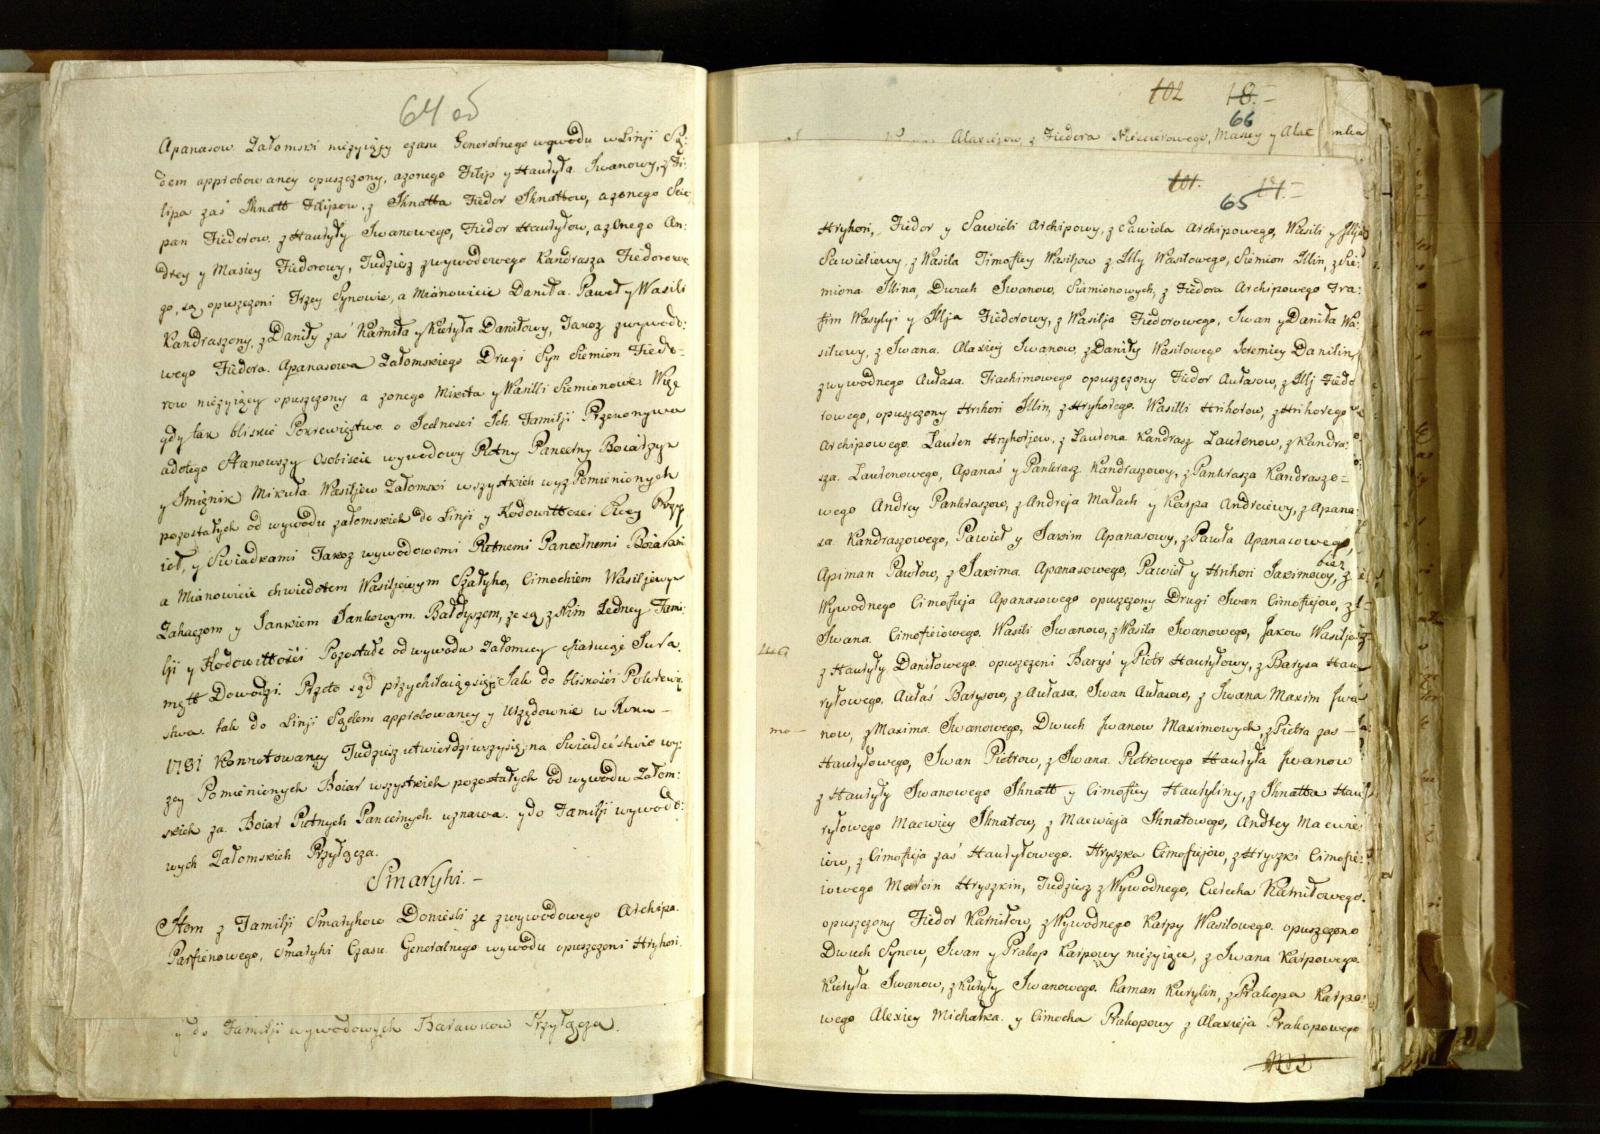 64 об
Apanasow Załomski nieżyiący czasu Generalnego wywodu w Linji Są:
dem approbowaney opuszczony, azonego Filip y Hauryła Iwanowy, z Fi:
lipa zaś Ihnatt Filipow, z Ihnatta Fiedor Ihnattow, azonego Ste:
pan Fiedorow, z Hauryły Iwanowego, Fiedor Hauryłow, azonego An:
drey y Masiey Fiedorowy, Tudziesz z wywodowego Kandrasza Fiedorowe
go, są opuszczeni Trzey Synowie, a Mianowicie Daniła, Paweł y Wasili
Kandraszowy, z Daniły zaś Karniła y Kuryła Daniłowy, Takoż z wywodo:
wego Fiedora Apanasowa Załomskiego Drugi Syn Siemion Fiedo-
row nieżyiący opuszczony a zonego Mikita y Wasilli Siemionowe. Więc
gdy tak bliskie Pokrewięstwo o Jedności Ich Familji Przekonywa
adotego Stanowszy Osobiscie wywodowy Putny Pancerny Boiarzyn
y Imięnik Mikuła Wasiljew Załomski wszystkich wyż Pomienionych
pozostałych od wywodu załomskich do Linji y Rodowittości Swey Przy
ieł, y Swiadkami Takoż wywodowemi Putnemi Pancernemi Boiarami
a Mianowicie Chwiedorem Wasiljewym Szałyho, Cimochiem Wasiljewym
Zahaczom y Jankiem Jankowym Bałdyszem, że są z Nim Jedney Fami:
lji y Rodowittości Pozostałe od wywodu Załomscy ofiaruje Jura
mętt Dowodzi. Przeto sąd przychilaiąc się Jak do bliskości Pokrewię
stwa tak do Linji Sądem approbowaney y Urzędownie w Roku —
1781 Konnotowaney Tudziesz utwierdziwszy się na Swiadectwie wy:
żey Pomienionych Boiar wszystkich pozostałych od wywodu Załom:
skich za Boiar Putnych Pancernych uznawa y do Familji wywodo:
wych Załomskich Przyłącza.
Smaryhi. —
Item z Familji Smaryhow Donieśli że z wywodowego Archipa
Parfienowego, Smaryhi Czasu Generalnego wywodu opuszczoni Hryhori
y do Familji wywodowych Barawkow Przyłącza.
102 18.-
66
Alaxiejow, z Fiedora Masiey y Alex
101. 17.-
65
Hryhori, Fiedor y Sawieli Archipowy, z Sawiela Archipowego, Wasili y Illja
Sawieliewy, z Wasila Timofiey Wasilow z Illy Wasilowego, Siemion Illin, z Sie:
miona Illina, Dwuch Iwanow Siemionowych, z Fiedora Archipowego Tra:
fim Wasylyi y Illja Fiedorowy, z Wasilja Fiedorowego, Iwan y Daniła Wa:
silewy, z Iwana Alaxiey Iwanow, z Daniły Wasilowego Jeremiey Danilin
z wywodnego Aułasa Trachimowego opuszczony Fiedor Aułasow, z Illj Fiedo
rowego, opuszczony Hrihori Illin, z Hryhorego Wasilli Hrihorow, z Hrihorego
Archipowego Lauren Hryhorjew, z Laurena Kandrasz Laurenow, z Kandra:
sza Laurenowego, Apanaś y Pankrasz Kandraszowy, z Pankrasza Kandraszo-
wego Andrey Pankraszow, z Andreja Małach y Karpa Andreiewy, z Apana:
sa Kandraszowego, Pawieł y Jakim Apanasowy, z Pawła Apanasowego,
Apiman Pawłow, z Jakima Apanasowego, Pawieł y Hrihori Jakimowy, z
Wywodnego Cimofieja Apanasowego opuszczony Drugi Iwan Cimofiejow, z
Iwana Cimofieiowego Wasili Iwanow, z Wasila Iwanowego, Jakow Wasiljow
z Hauryły Daniłowego opuszczeni Baryś y Piotr Hauryłowy, z Barysa Hau
ryłowego, Aułaś Barysow, z Aułasa Iwan Aułasow, z Iwana Maxim Iwa
now, z Maxima Iwanowego, Dwuch Iwanow Maximowych, z Pietra zas —
Hauryłowego, Iwan Pietrow, z Iwana Pietrowego Hauryła Iwanow
z Hauryły Iwanowego Ihnatt y Cimofiey Hauryliny, z Ihnatta Hau
ryłowego Maewiey Ihnatow, z Maewieja Ihnatowego, Andrey Maewie
iow, z Cimofieja zaś Hauryłowego Hryszka Cimofiejow, z Hryszki Cimofie:
iowego Marcin Hryszkin, Tudziesz z Wywodnego, Cierecha Karniłowego
opuszczony Fiedor Karniłow, z Wywodnego Karpy Wasilowego opuszczono
Dwuch Synow, Iwan y Prakop Karpowy nieżyiące, z Iwana Karpowego
Kuryła Iwanow, z Kuryły Iwanowego Raman Kurylin, z Prakopa Karpo:
wego Alexiey Michałka y Cimocha Prakopowy z Alaxieja Prakopowego